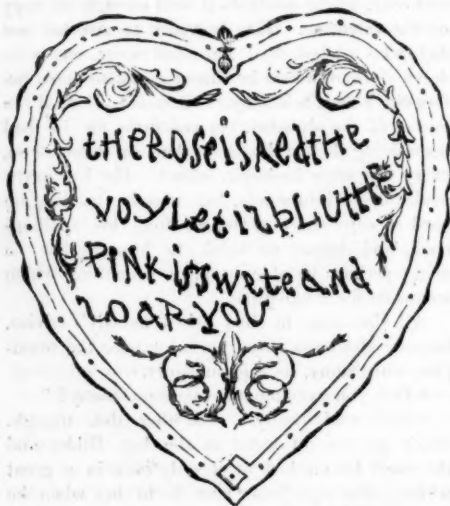 tHEROSeisRedtHE
VOYLet iz bLUtHE
PINKisswete and
zo aR YOU